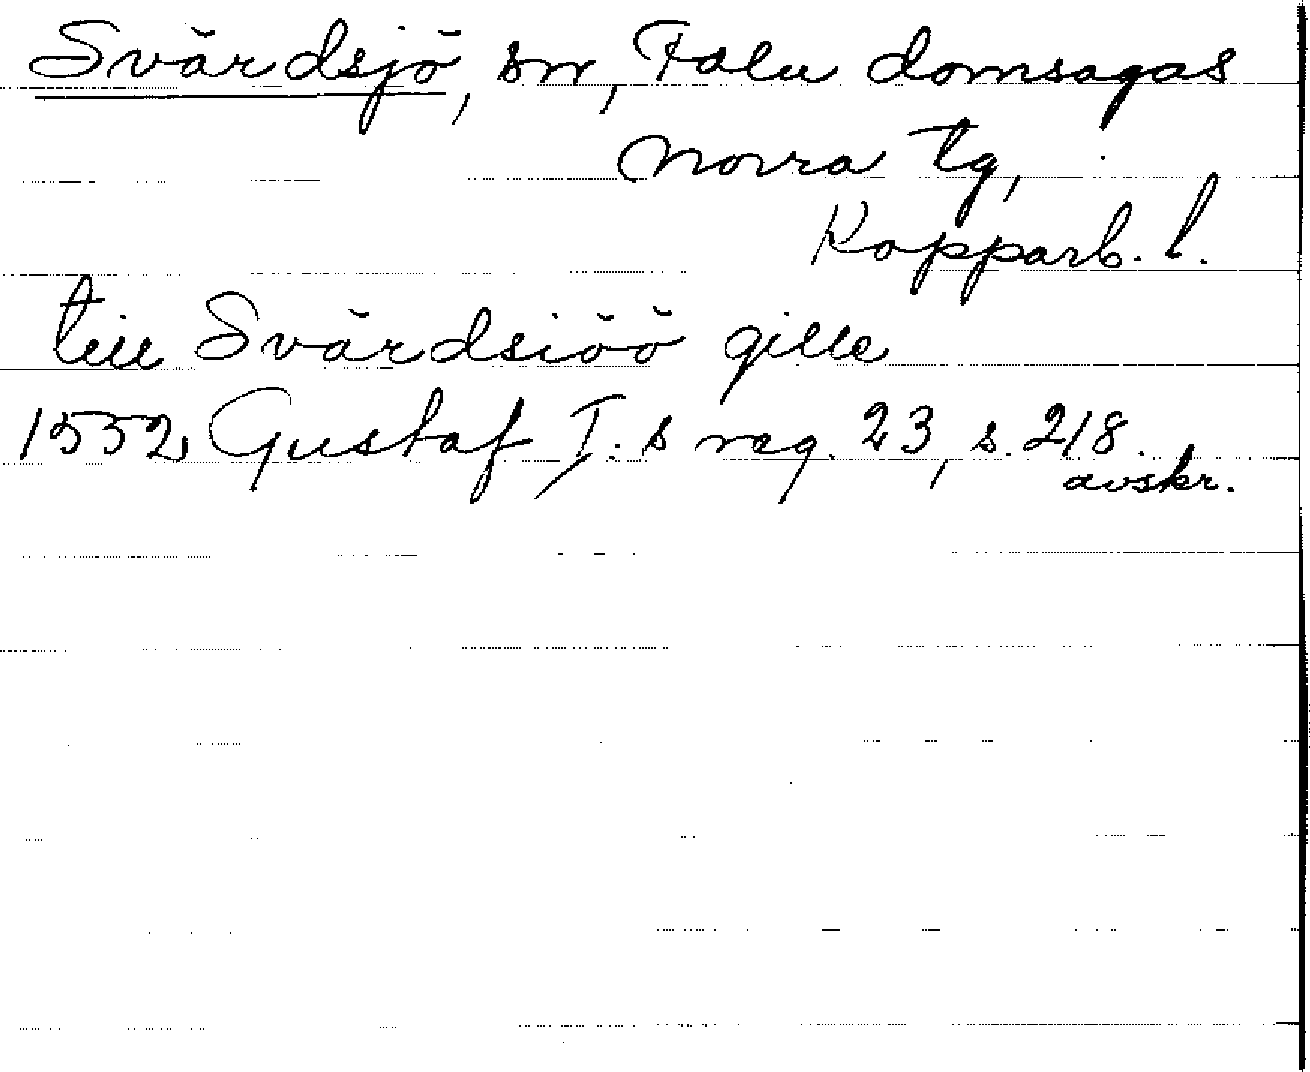 Svärdsjö, sn, Falu domsagas
norra tg,
Kopparb. l.
till Svärdsiöö gille
1552 Gustaf I. s reg. 23, s. 218.
avskr.